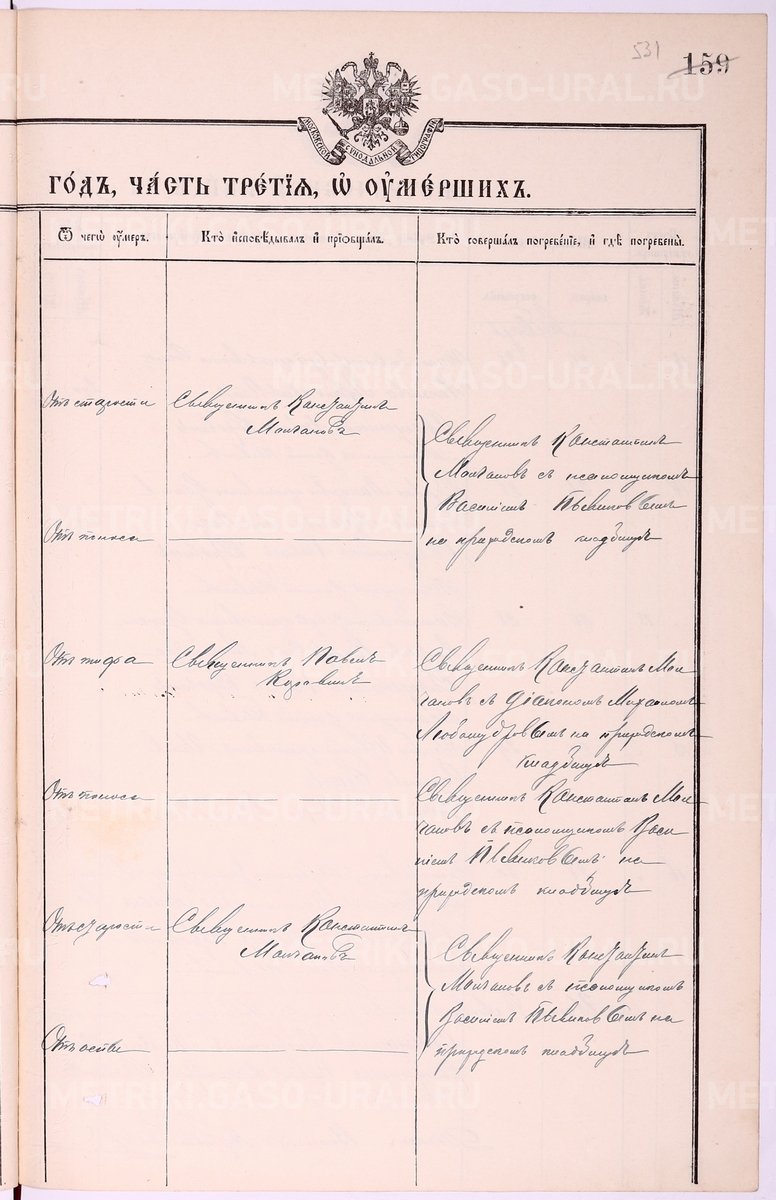 531
159
МОСКОВСКОЙ СѴНОДАЛЬНОЙ ТИПОГРАФІИ
ГО́ДЪ, ЧА́СТЬ ТРЕ́ТІѦ, Ѡ҆ ОУ҆МЕ́РШИХЪ.
Ѿ чегѡ̀ оу҆́меръ.
Кто̀ и҆сповѣ́дывалъ и҆ прїѡбща́лъ.
Кто̀ соверша́лъ погребе́нїе, и҆ гдѣ̀ погребены̀.
Отъ старости
Священникъ Константинъ
Молчановъ
Священникъ Константинъ
Молчановъ съ псаломщикомъ
Василіемъ
на приходскомъ кладбищѣ
Отъ поноса
Отъ тифа
Священникъ Павелъ
Священникъ Константинъ Мол
чановъ съ діакономъ Михаиломъ
Любомудровымъ на приходскомъ
кладбищѣ
Отъ поноса
Священникъ Константинъ Мол
чановъ съ псаломщикомъ Васи
ліемъ на
приходскомъ кладбищѣ
Отъ старости
Священникъ Константинъ
Молчановъ
Священникъ Константинъ
Молчановъ съ псаломщикомъ
Василіемъ на
приходскомъ кладбищѣ
Отъ оспы
METRIKI.GASO-URAL.RU